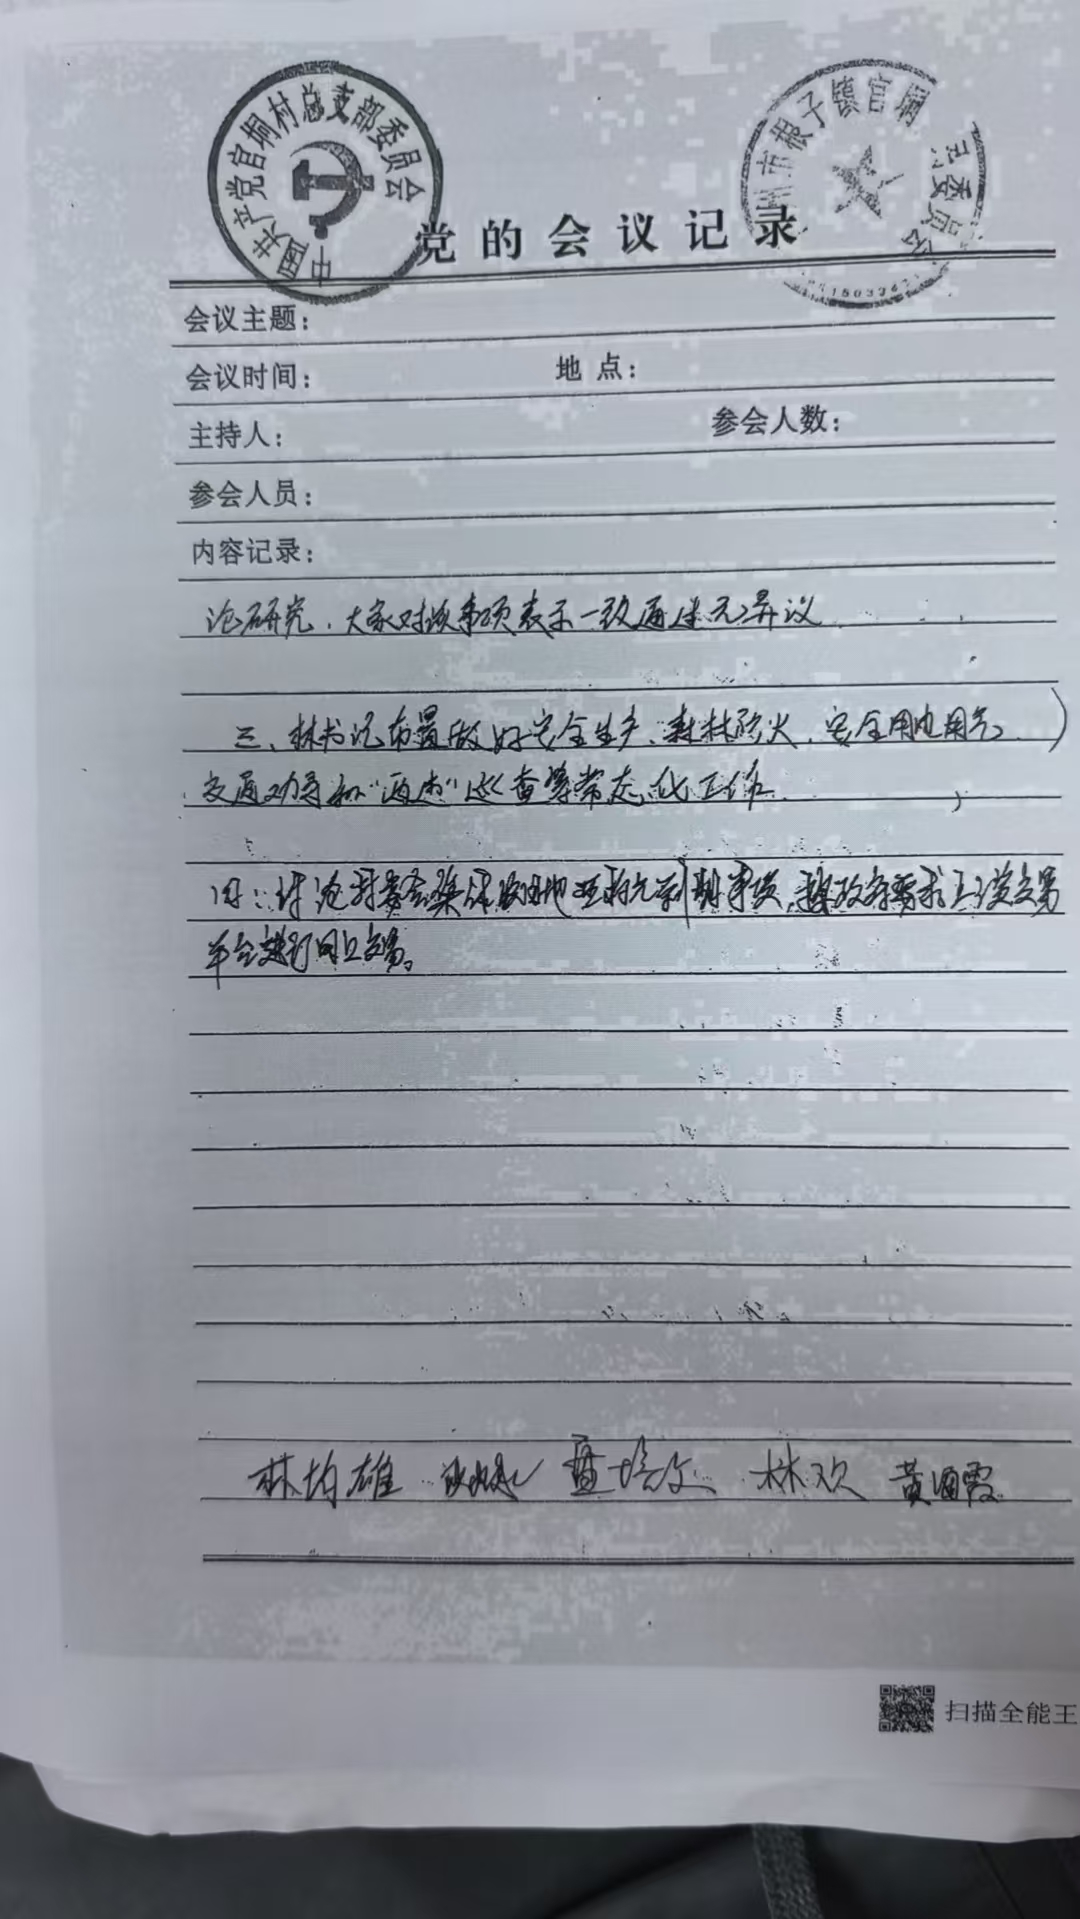 中国共产党官垌村总支部委员会
州市根子镇官垌 委员会
党的会议记录
会议主题：
会议时间： 地点：
主持人： 参会人数：
参会人员：
内容记录：
论研究，大家对该事项表示一致通过无异议
三、林书记布置做好安全生产、森林防火、安全用电用气、
交通劝导和“两违”巡查等常态化工作
四：讨论村委会集体 到期事宜，按政府要求上 交易
平台进行网上交易。
林均雄 林欢 黄
扫描全能王